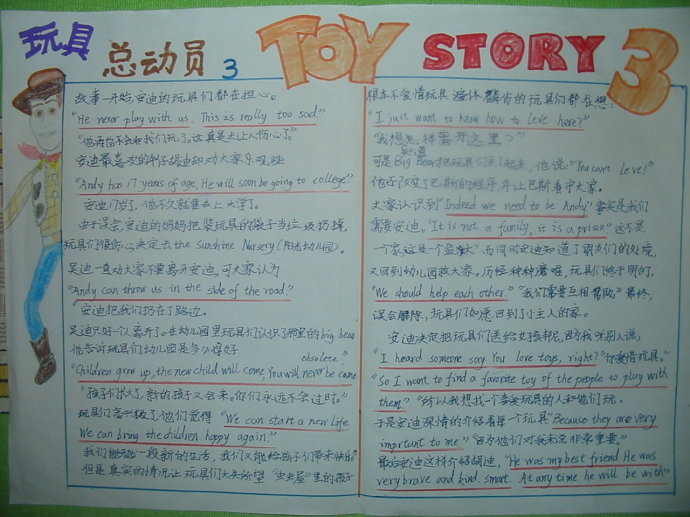 玩具总动员3
TOY STORY 3
故事一开始,安迪的玩具们都在担心。
"He never play with us. This is really too sad."
"他再也不会和我们玩了。这真是太让人伤心了"
安迪最喜欢的牛仔胡迪却劝大家乐观些
"Andy has 17 years of age, He will soon be going to college."
安迪17岁了,他不久就要去上大学了。
由于误会,安迪的妈妈把装玩具的袋子当垃圾扔掉,
玩具们很伤心决定去the sunshine Nursery(阳光幼儿园)。
吴迪一直劝大家不要离开安迪,可大家认为
"Andy can throw us in the side of the road"
安迪把我们扔在了路边。
吴迪只好一个人离开了。在幼儿园里玩具们认识了那里的big bear
他告诉玩具们幼儿园是多么得好
obsolete."
"Children grow up, the new child will come, You will never be came
"孩子们长大了,新的孩子又会来。你们永远不会过时。"
玩具们高兴极了他们觉得 "We can start a new life
We can bring the children happy again"
我们能开始一段新的生活,我们又能给孩子们带来快乐了
但是真实的情况让玩具们大失所望 "虫虫屋"里的孩子
根本不爱惜玩具 遍体鳞伤的玩具们都在想:
"I just want to know how to leve here?"
"我想知道怎样离开这里?"
可是Big Bear把玩具们关了起来,他说:"You can't leve!"
他还改变了巴斯的程序,并让巴斯看守大家。
大家认识到"Indeed we need to be Andy" 事实是我们
需要安迪。"It is not a family, it is a prison" 这不是
一个家,这是一个监狱" 而同时安迪知道了朋友们的处境,
又回到幼儿园救大家,历经种种磨难,玩具们终于明白,
"We should help each other." "我们需要互相帮助。" 最终,
误会解除,玩具们如愿回到小主人的家。
安迪决定把玩具们送给女孩邦尼,因为我听别人说,
"I heard someone say You love toys, right?" "你爱惜玩具。"
"So I want to find a favorite toy of the people to play with
them" "所以我想找一个喜爱玩具的人和他们玩。
于是安迪深情的介绍着每一个玩具 "Because they are very
imprtunt to me" "因为他们对我来说非常重要。"
最后安迪这样介绍胡迪, "He was my best friend He was
very brave and kind. smart. At any time he will be with"